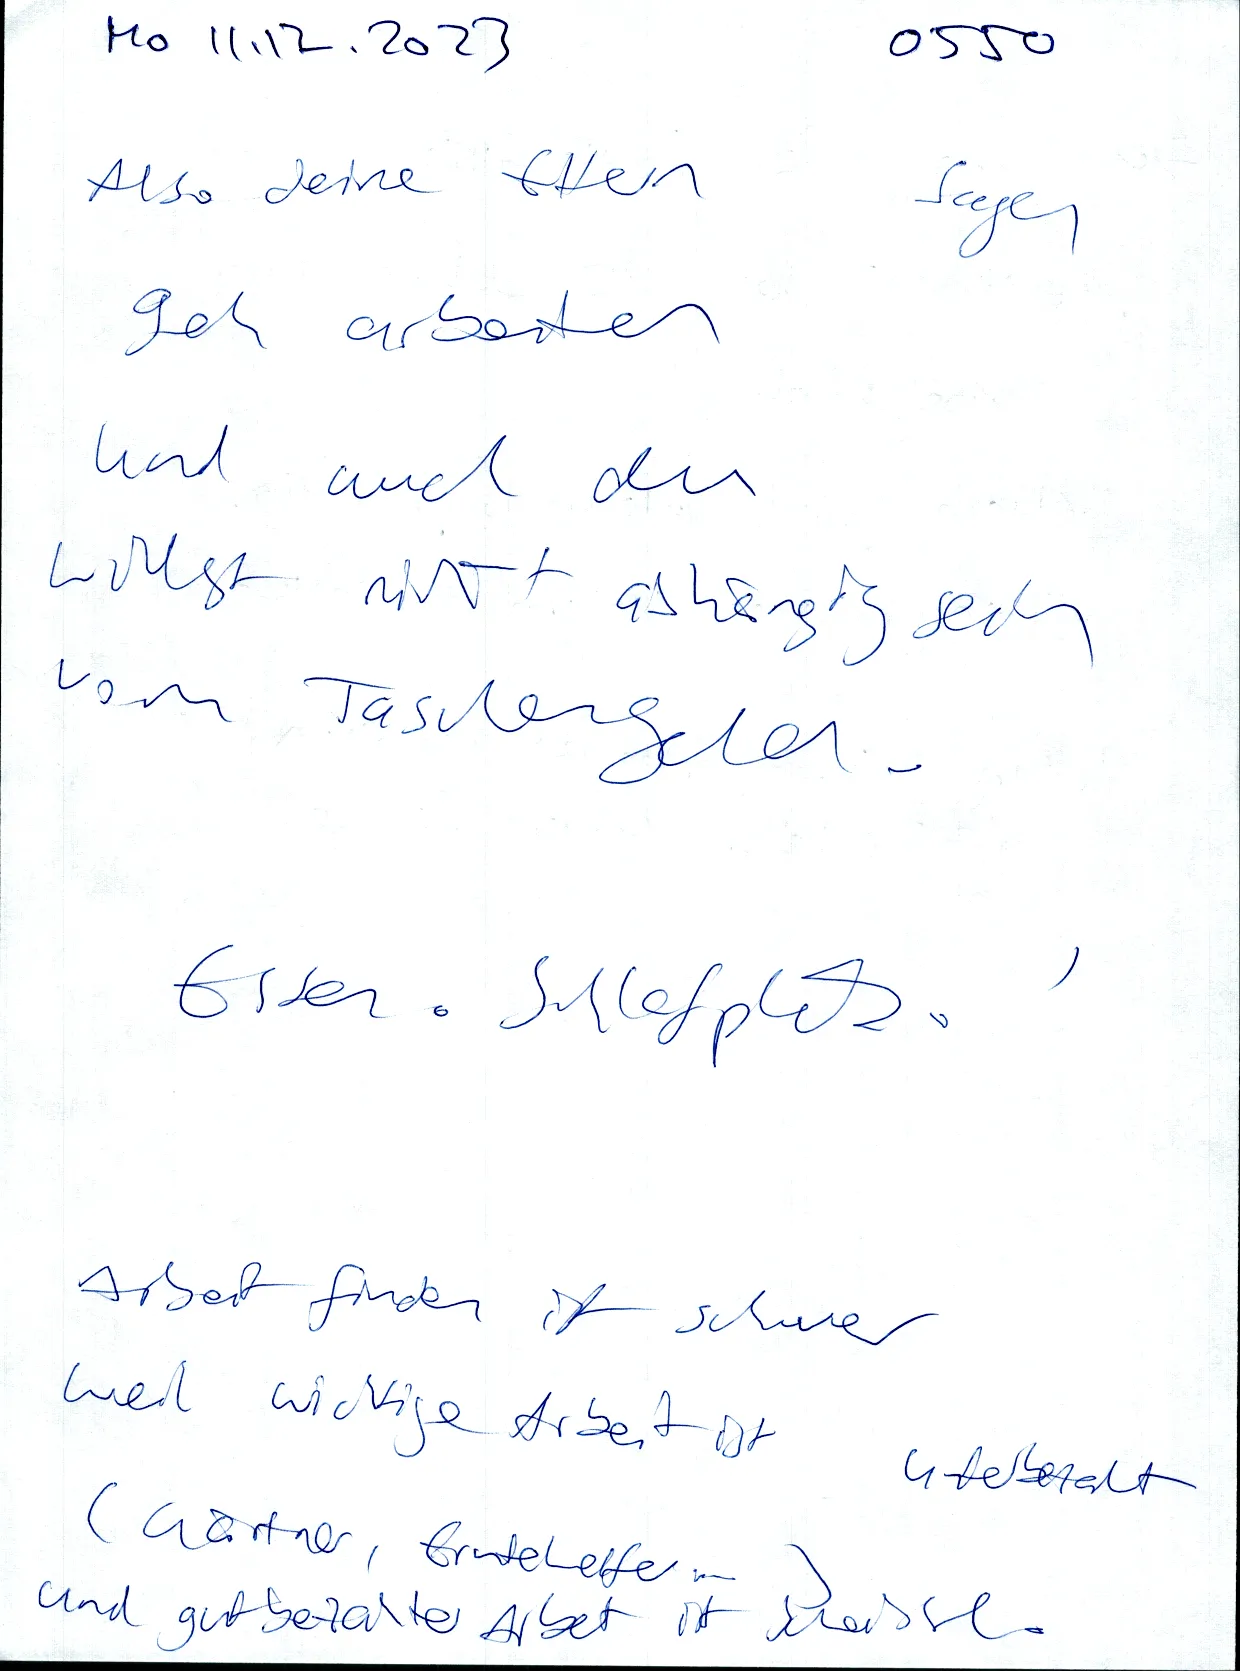 Mo 11.12.2023 0550
Also deine Eltern sagen
geh arbeiten
und auch du
willst nicht abhängig sein
vom Taschengeld.
Essen. Schlafplatz.
Arbeit finden ist schwer
weil wichtige Arbeit ist unterbezahlt
(Gärtner, Erntehelfer...)
und gutbezahlte Arbeit ist scheisse.